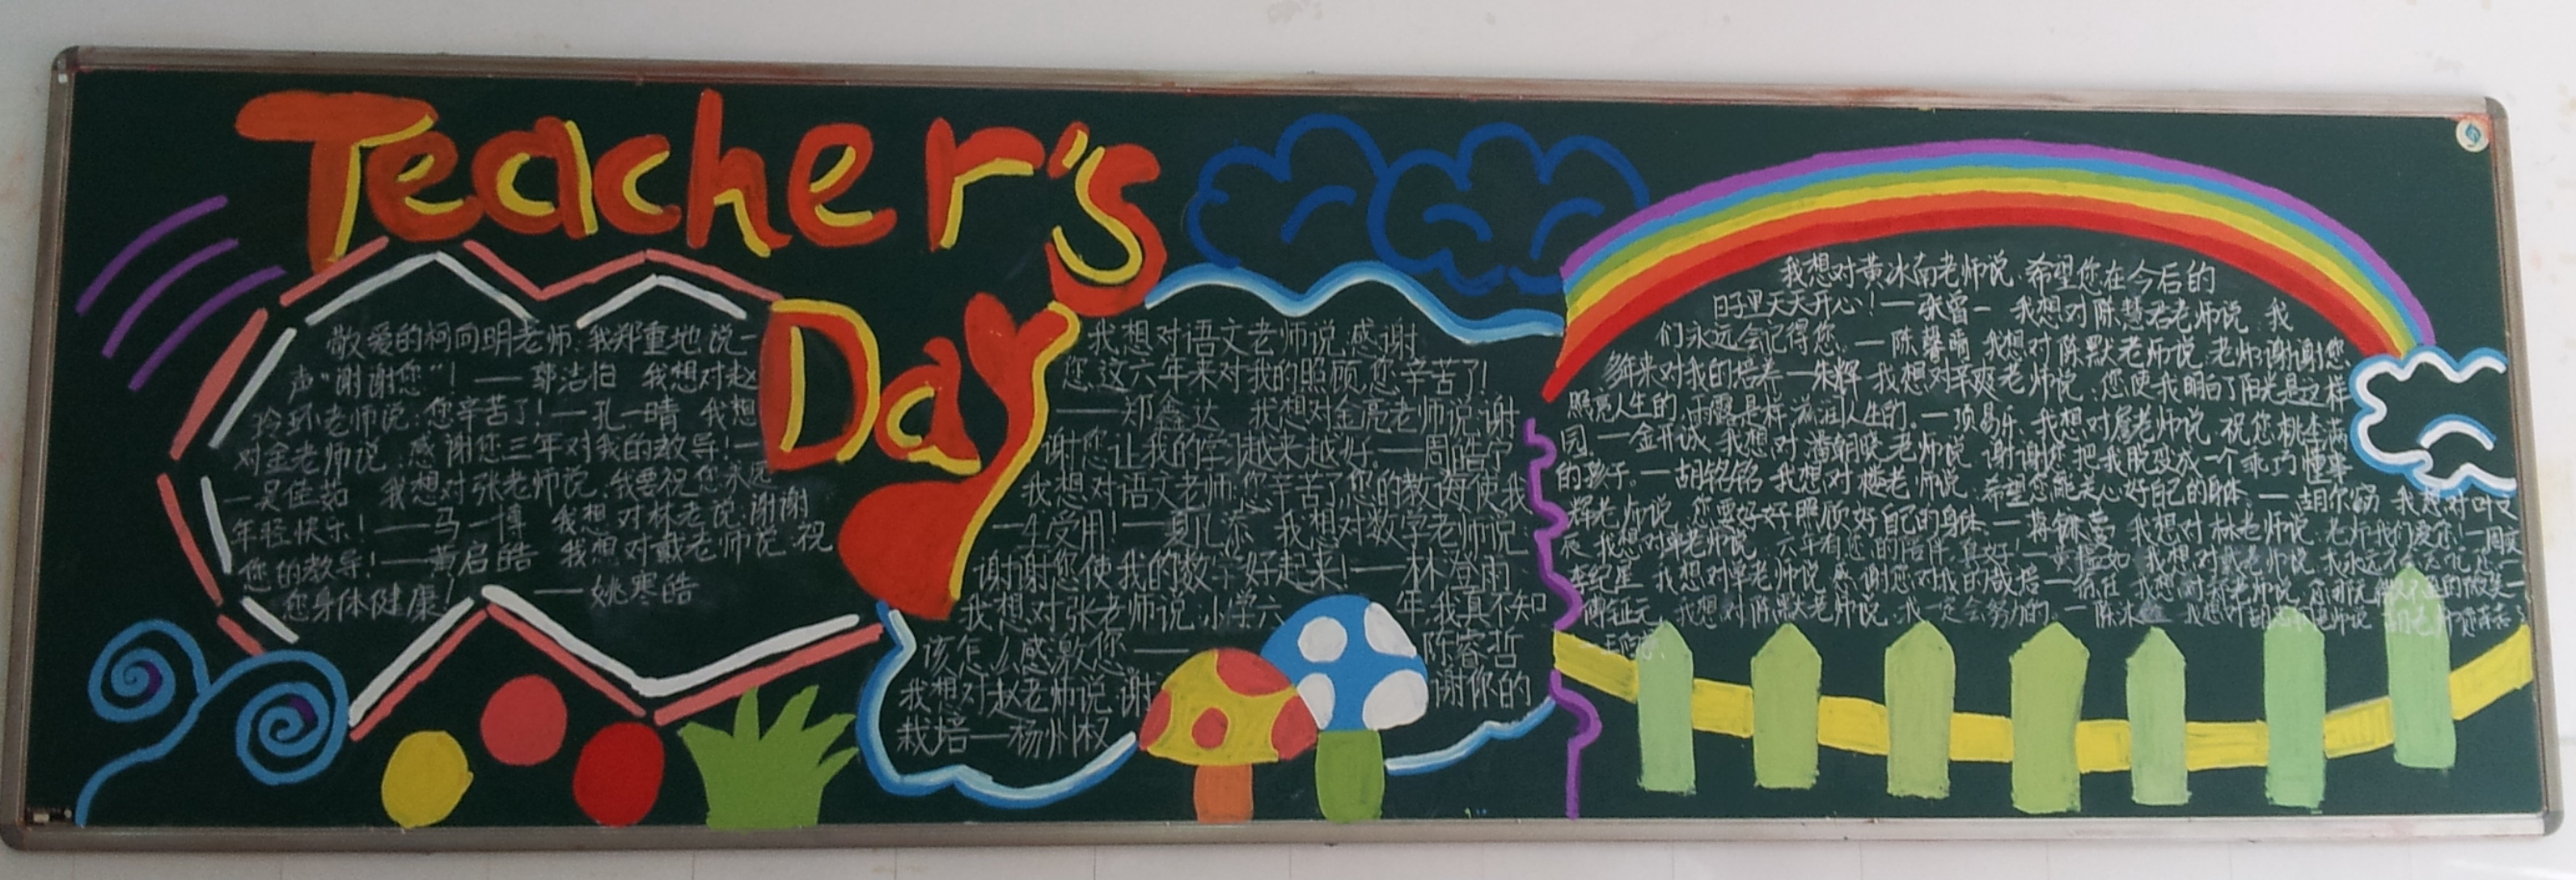 Teacher's
Day
敬爱的柯向明老师:我郑重地说一
声“谢谢您”!——郭洁怡 我想对赵
玲环老师说:您辛苦了!—孔一晴 我想
对金老师说:感谢您三年对我的教导!—
—吴佳茹 我想对张老师说:我要祝您永远
年轻快乐!——马一博 我想对林老说:谢谢
您的教导!——黄启皓 我想对戴老师说:祝
您身体健康! ——姚寒皓
我想对语文老师说:感谢
您这六年来对我的照顾,您辛苦了!
——郑鑫达 我想对金亮老师说:谢
谢您让我的学习越来越好。—周皓宁
我想对语文老师:您辛苦了,您的教诲使我
一生受用!—夏 添 我想对数学老师说:
谢谢您使我的数学好起来!——林澄雨
我想对张老师说:小学六年,我真不知
该怎么感激您——陈睿哲
我想对赵老师说:谢谢你的
栽培——杨州权
我想对黄冰南老师说:希望您在今后的
日子里天天开心!—张曾一 我想对陈慧君老师说:我
们永远会记得您。—陈馨晴 我想对陈默老师说:老师,谢谢您
多年来对我的培养—朱辉 我想对辛爽老师说:您使我明白了阳光是这样
照亮人生的,雨露是样滋润人生的。—项易乐 我想对詹老师说:祝您桃李满
园 —金开诚 我想对潘朝晓老师说:谢谢您把我脱变成一个乖巧懂事
的孩子。—胡铭铭 我想对楼老师说:希望您能关心好自己的身体 — 胡尔 我想对叶文
辉老师说:您要好好照顾好自己的身体 —蒋 我想对林老师说:老师,我们爱您!—周
辰 我想对单老师说:六年有您的陪伴,真好! 我想对戴老师说:我永远不会忘记您—
李纪星 我想对单老师说:感谢您对我的栽培 —徐任 我想对郑老师说:您那
傅钲元 我想对陈默老师说:我一定会努力的。—陈冰 我想对胡 老师说